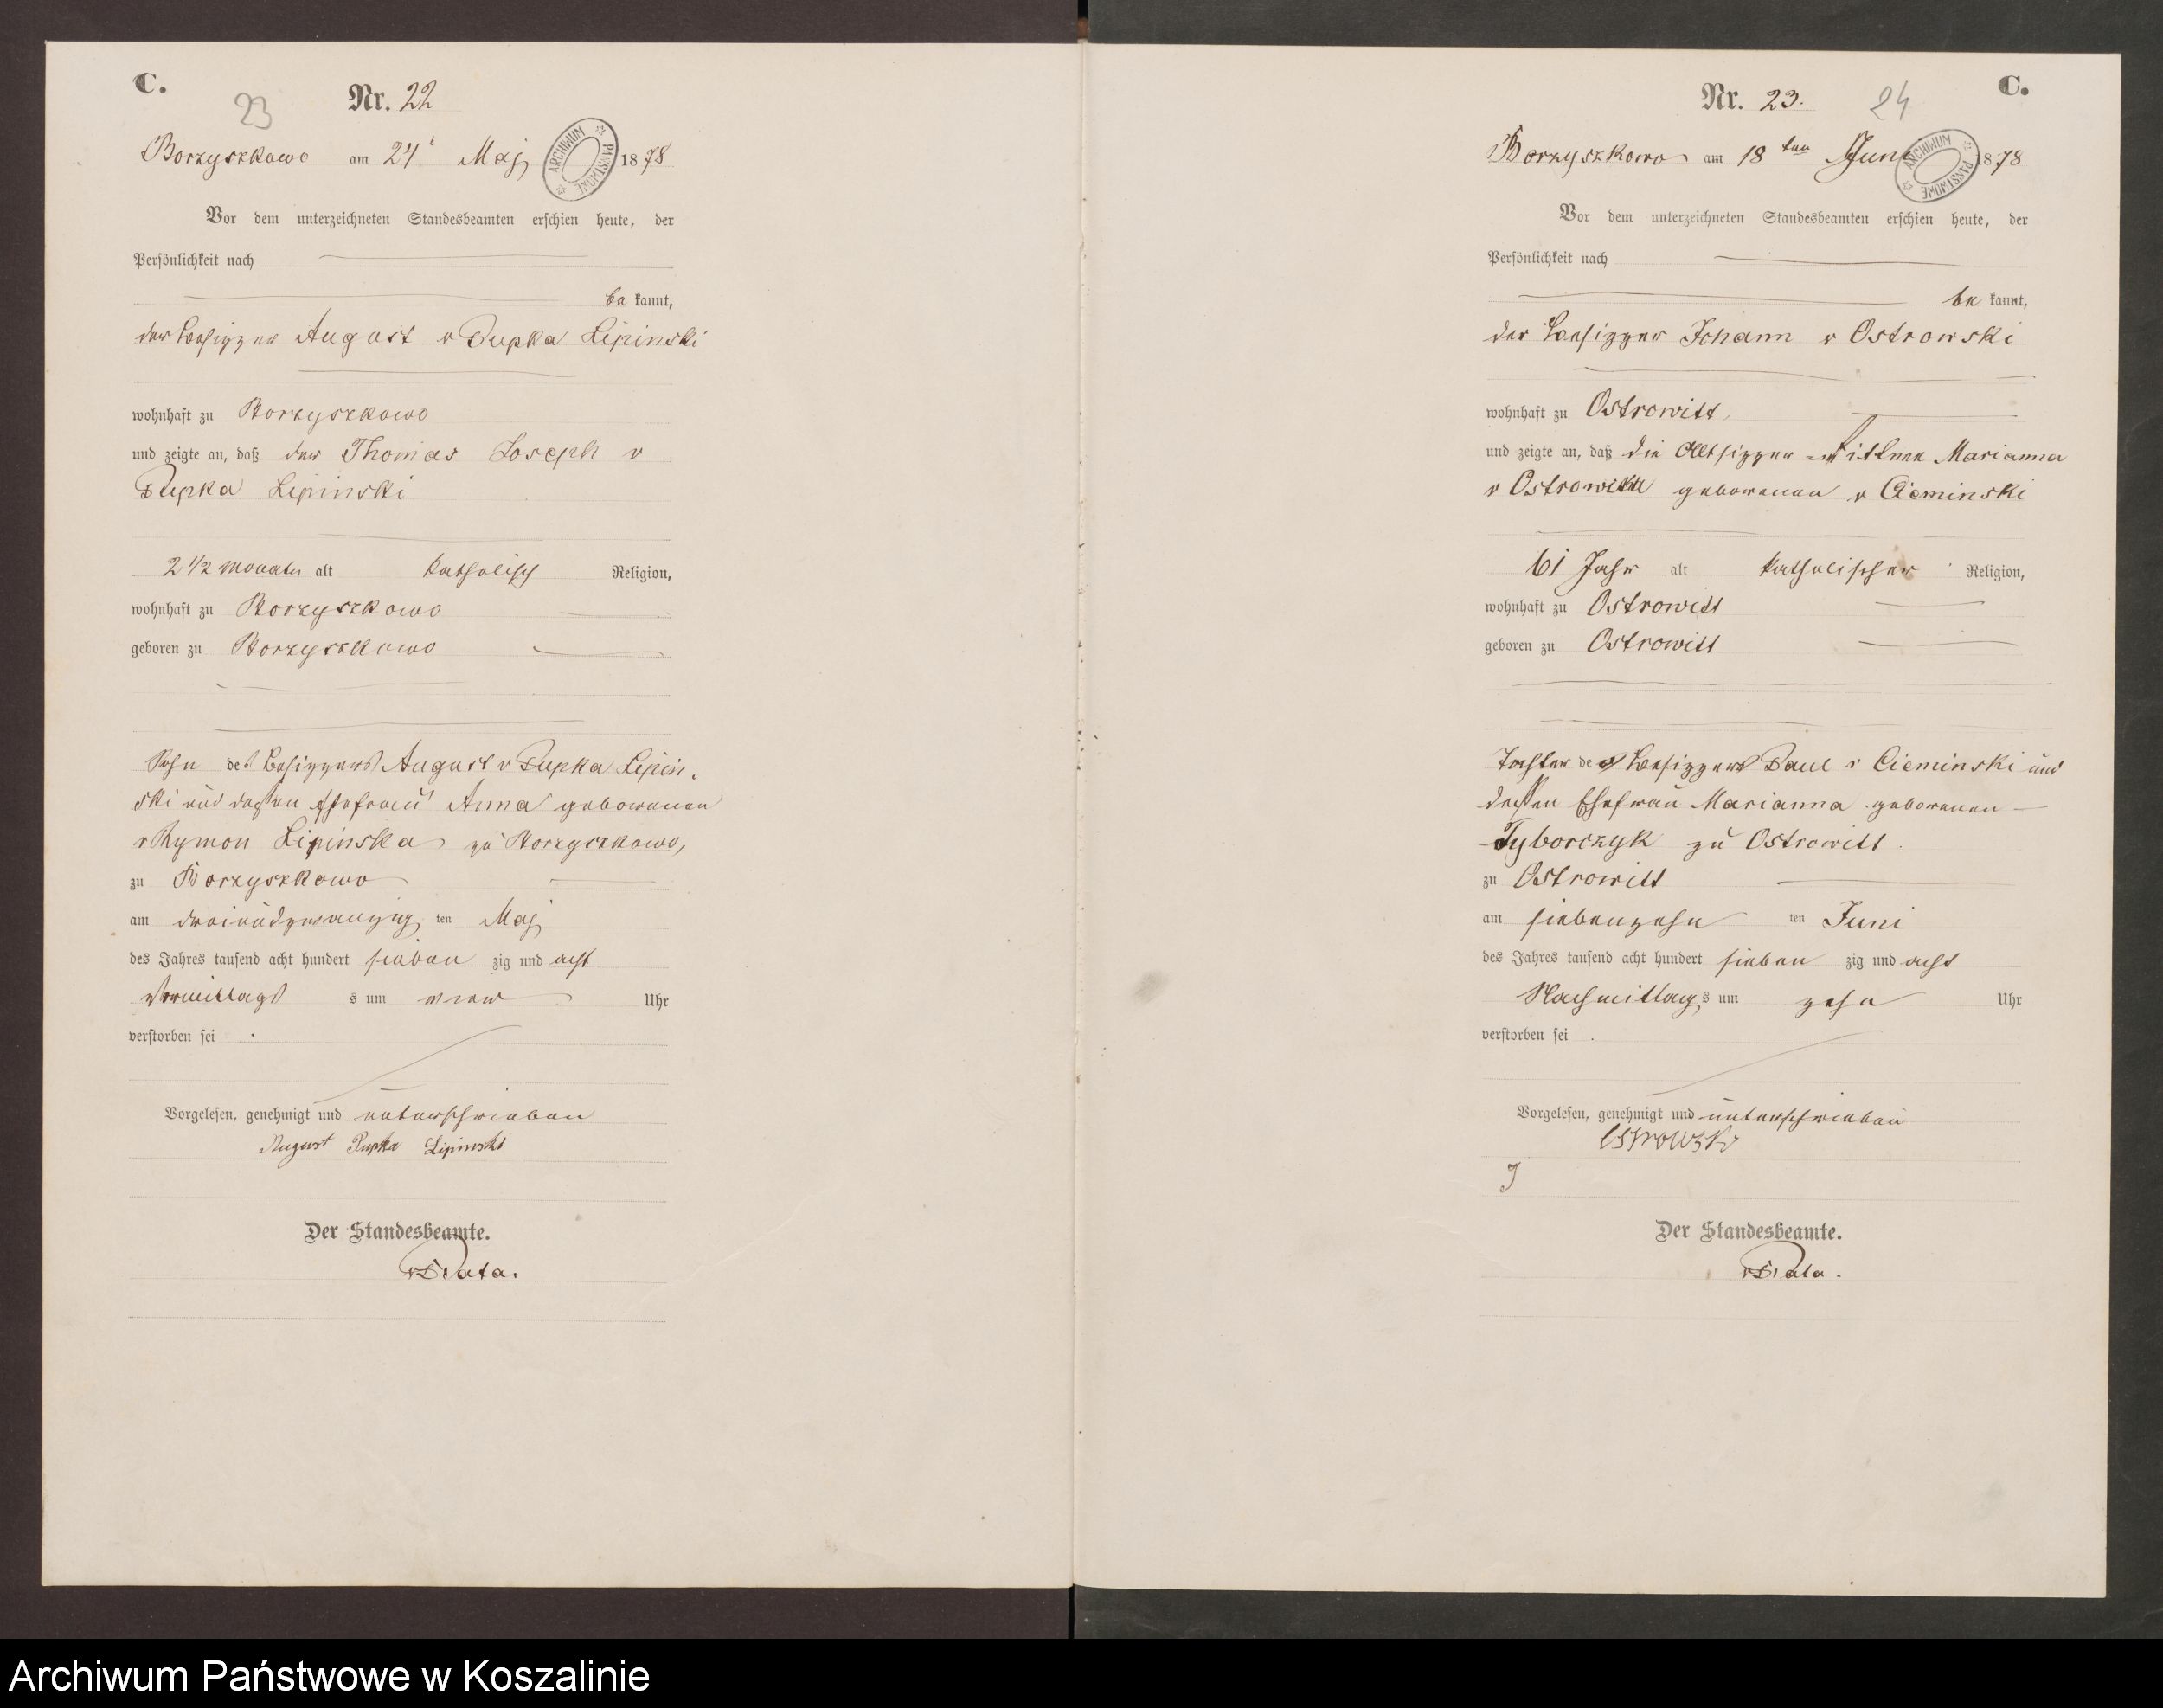 C.
23
Nr. 22
Borzyszkowo am 24t Maj 1878
ARCHIWUM PAŃSTWOWE
Vor dem unterzeichneten Standesbeamten erschien heute, der
Persönlichkeit nach
be kannt,
der Besizzer August v Pupka Lipinski
wohnhaft zu Borzyszkowo
und zeigte an, daß der Thomas Joseph v
Pupka Lipinski
2 1/2 Monate alt katholisch Religion,
wohnhaft zu Borzyszkowo
geboren zu Borzyszkowo
Sohn des Besizzers August v Pupka Lipin-
ski und dessen Ehefrau Anna geborenen
v Rymon Lipinska zu Borzyszkowo,
zu Borzyszkowo
am dreiundzwanzig ten Maj
des Jahres tausend acht hundert sieben zig und acht
Vormittags s um vier Uhr
verstorben sei .
Vorgelesen, genehmigt und unterschrieben
August Pupka Lipinski
Der Standesbeamte.
Nr. 23.
24
C.
Borzyszkowo am 18 ten Juni 1878
ARCHIWUM PAŃSTWOWE
Vor dem unterzeichneten Standesbeamten erschien heute, der
Persönlichkeit nach
be kannt,
der Besizzer Johann v Ostrowski
wohnhaft zu Ostrowitt
und zeigte an, daß die Altsizzer Wittwe Marianna
v geborenen v Cieminski
61 Jahr alt katholischer Religion,
wohnhaft zu Ostrowitt
geboren zu Ostrowitt
Tochter des Besizzers Paul v Cieminski und
dessen Ehefrau Marianna geborenen
Tyborczyk zu Ostrowitt.
zu Ostrowitt
am siebenzehn ten Juni
des Jahres tausend acht hundert sieben zig und acht
Nachmittag s um zehn Uhr
verstorben sei .
Vorgelesen, genehmigt und unterschrieben
Ostrowski
J
Der Standesbeamte.
Archiwum Państwowe w Koszalinie